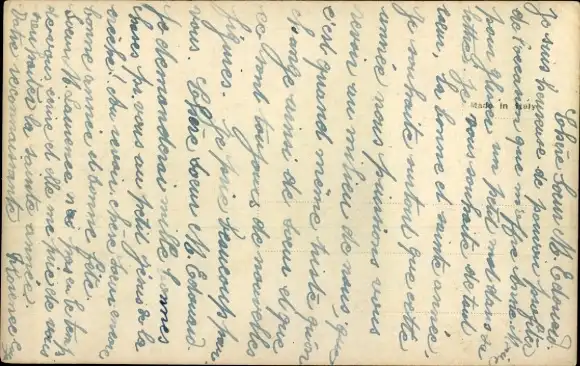 Chère Sœur M. Edouard.
Je suis heureuse de pouvoir profiter
de l'occasion que m'offre bonne M
pour glisser un petit mot dans sa
lettre. Je vous souhaite de tout
cœur, la bonne et sainte année,
Je souhaite surtout que cette
année nous puissions vous
revoir au milieu de nous, que
c'est quand même triste qu'on
change ainsi de sœur et que
ce sont toujours de nouvelles
figures. Je prie beaucoup pour
vous. Chère Sœur M. Edouard.
Je demanderai mille bonnes
choses pr. vous au petit Jésus de la
crèche! Au revoir chère Sœur encore
bonne année et bonne fête.
Sœur M. Laurence n'a pas eu le temps
de vous écrire et elle me prie de vous
souhaiter la sainte année.
Votre reconnaissante
Made in Italy